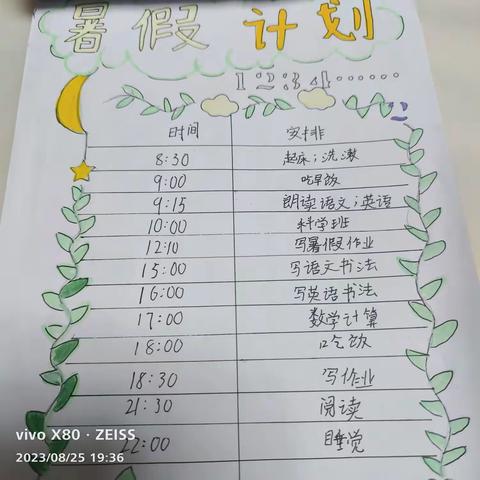 暑假计划
1 2 3 4 ……
时间 安排
8:30 起床;洗漱
9:00 吃早饭
9:15 朗读语文;英语
10:00 科学班
12:10 写暑假作业
15:00 写语文书法
16:00 写英语书法
17:00 数学计算
18:00 吃饭
18:30 写作业
21:30 阅读
22:00 睡觉
vivo X80 · ZEISS
2023/08/25 19:36